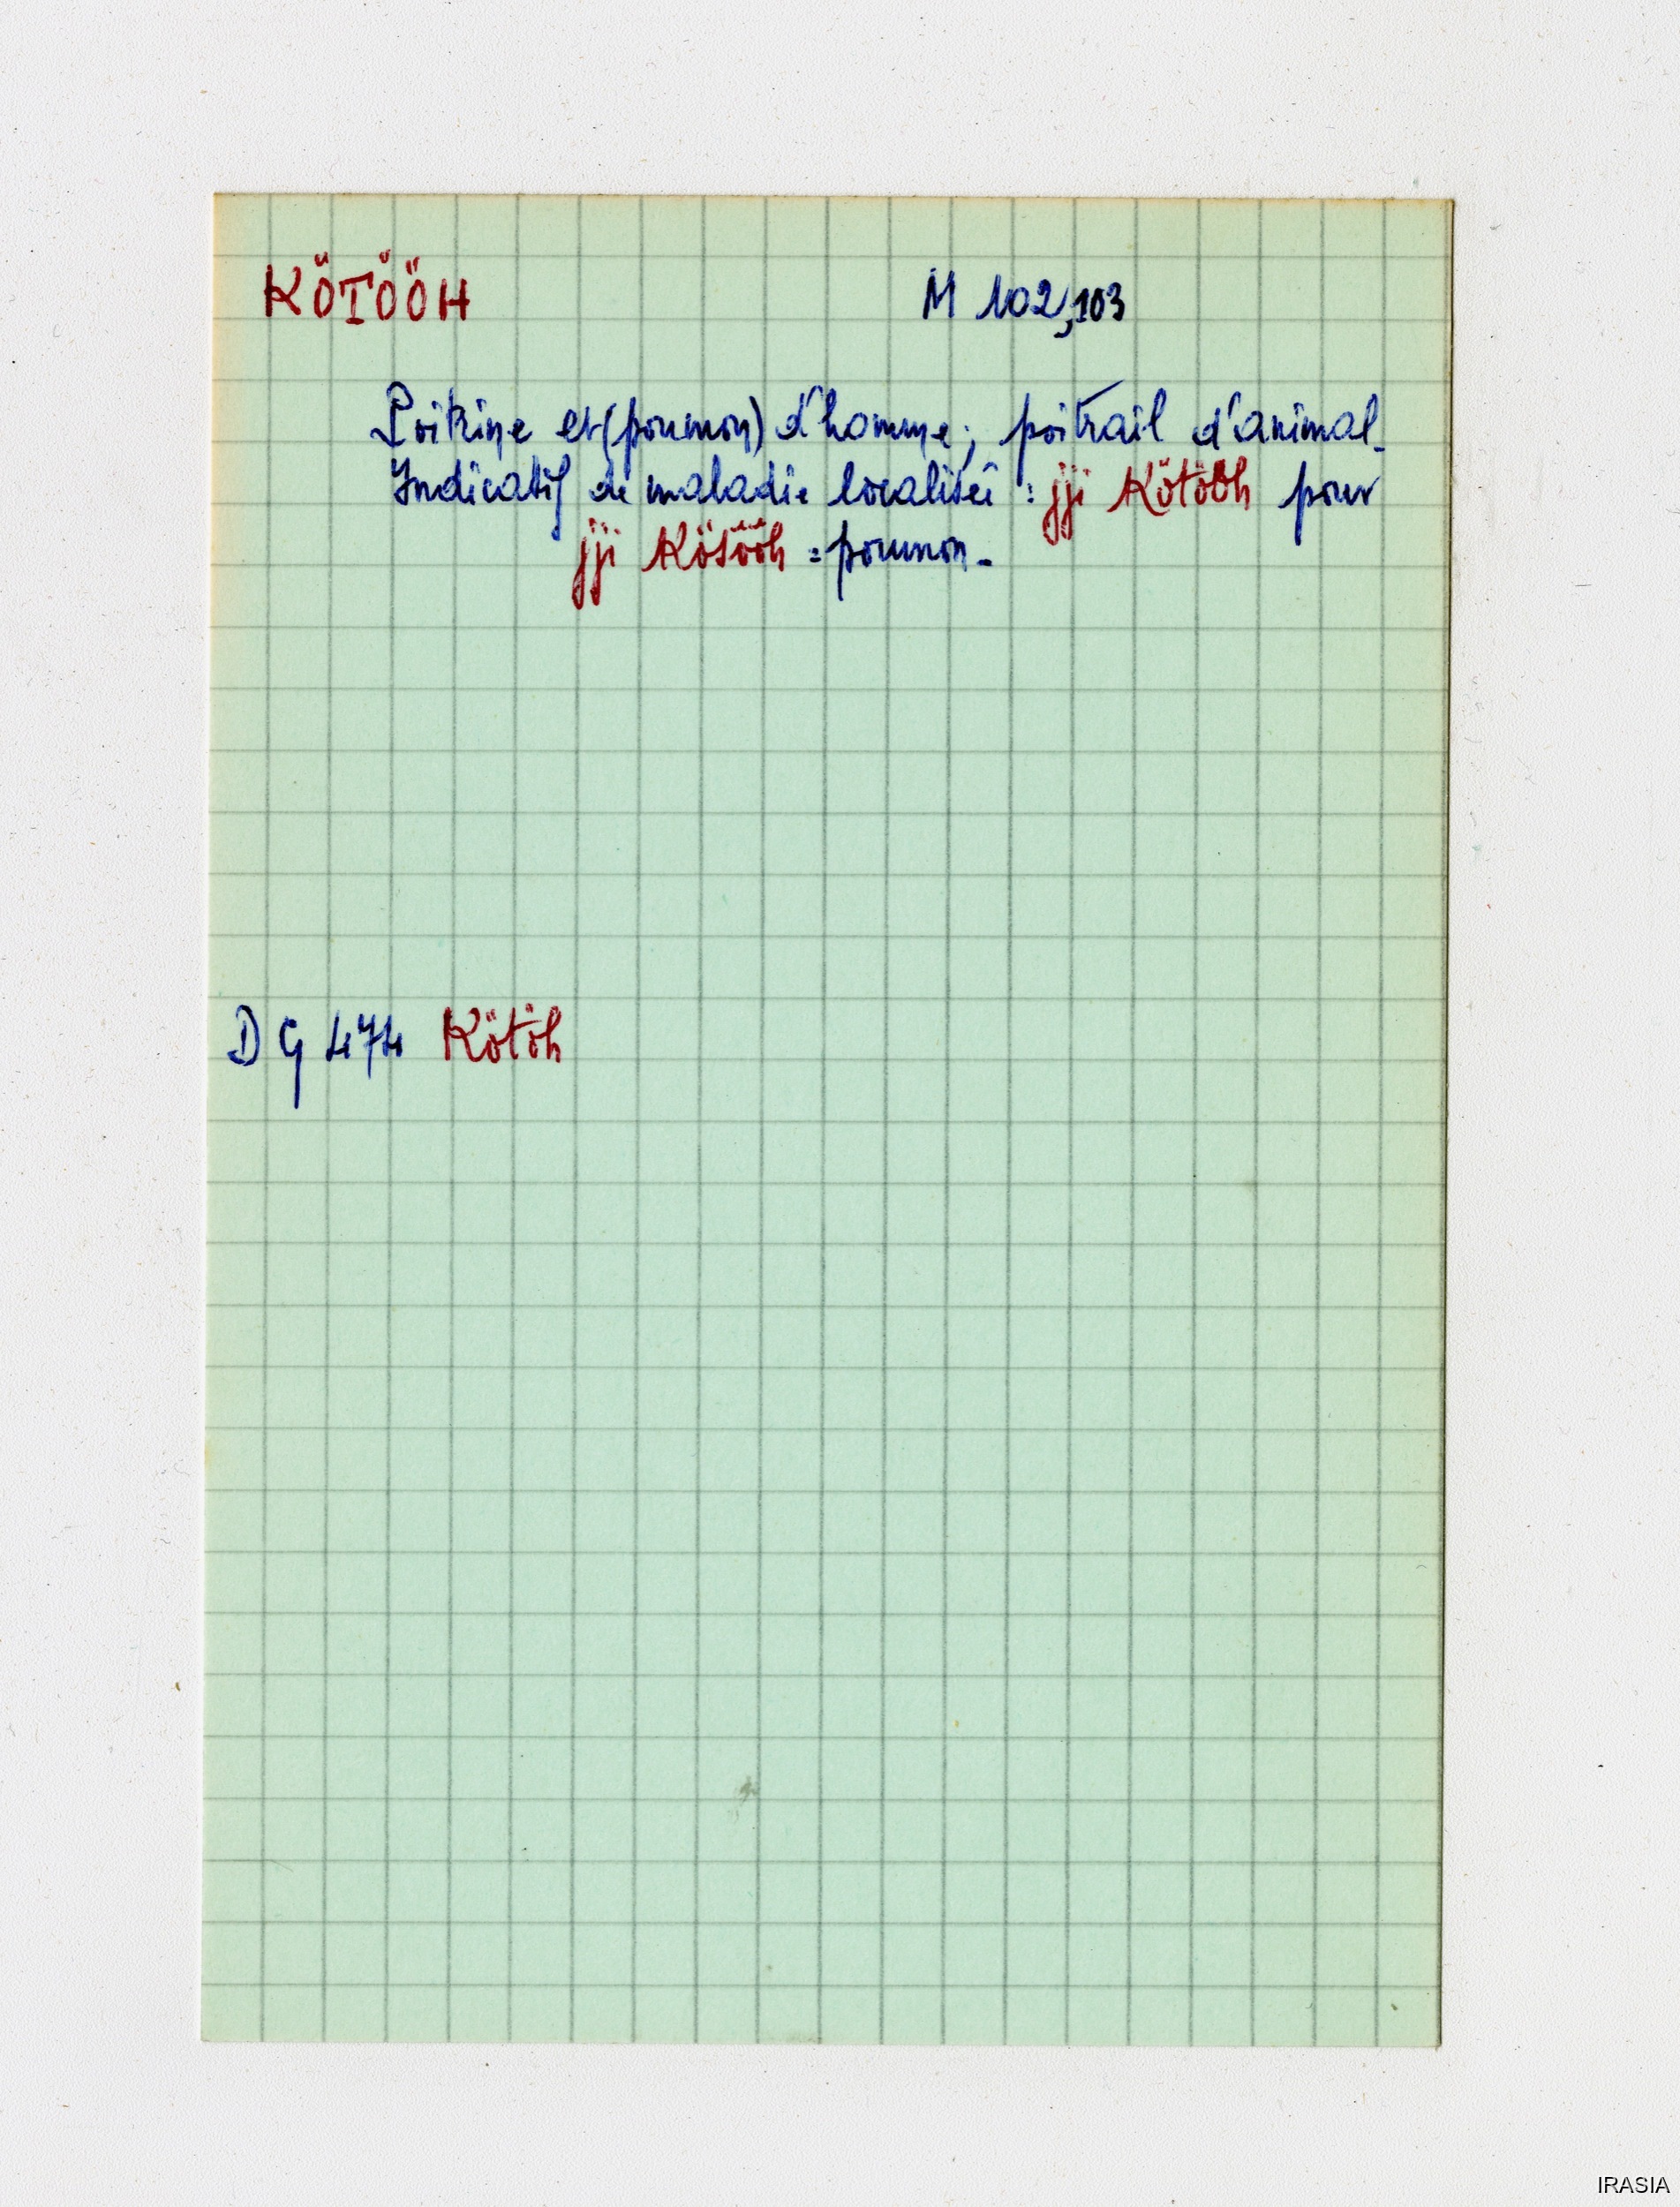 KÖTÖÖH M 102,103
Poitrine et (poumon) d'homme; poitrail d'animal.
Indicatif de maladie localisée : jji Kötööh pour
jji Kösööh = poumon.
DG 474 Kötöh
IRASIA